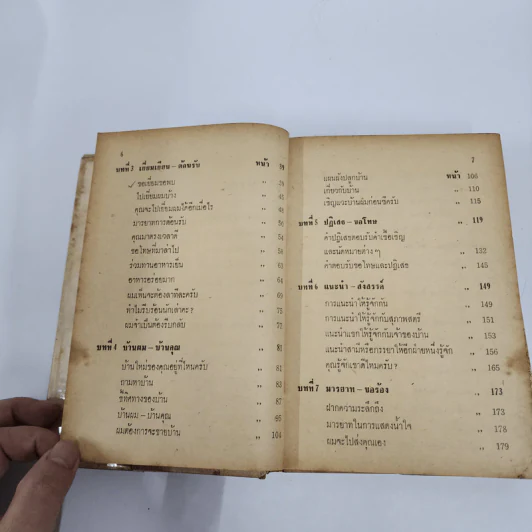 6
บทที่ 3 เยี่ยมเยียน – ต้อนรับ หน้า 39
ขอเยี่ยมขอพบ ,,
ไปเยี่ยมผมบ้าง ,,
คุณจะไปเยี่ยมผมได้อีกเมื่อไร ,,
มารยาทการต้อนรับ ,,
คุณมาตรงเวลาดี ,, 54
ขอโทษที่มาสาไป ,, 56
ร่วมทานอาหารเย็น ,,
อาหารอร่อยมาก ,,
ผมเห็นจะต้องลาทีละครับ ,,
ทำไมรีบร้อนนักเล่าคะ ? ,,
ผมจำเป็นต้องรีบกลับ ,,
บทที่ 4 บ้านผม – บ้านคุณ ,, 81
บ้านใหม่ของคุณอยู่ที่ไหนครับ ,, 81
ถามหาบ้าน ,, 83
ทิศทางของบ้าน ,, 87
บ้านผม – บ้านคุณ ,, 95
ผมต้องการจะขายบ้าน ,, 104
7
แผนผังปลูกบ้าน หน้า 106
เกี่ยวกับบ้าน ,, 110
เชิญแวะบ้านผมก่อนซีครับ ,, 115
บทที่ 5 ปฏิเสธ – ขอโทษ ,, 119
คำปฏิเสธตอบรับคำเชื้อเชิญ
และนัดหมายต่าง ๆ ,, 133
คำตอบรับขอโทษและปฏิเสธ ,, 145
บทที่ 6 แนะนำ – สังสรรค์ ,, 149
การแนะนำให้รู้จักกัน ,, 149
การแนะนำให้รู้จักกับสุภาพสตรี ,, 151
แนะนำแขกให้รู้จักกับเจ้าของบ้าน ,, 153
แนะนำสามีหรือภรรยาให้อีกฝ่ายหนึ่งรู้จัก ,, 156
คุณรู้จักเขาดีไหมครับ? ,, 165
บทที่ 7 มารยาท – ขอร้อง ,, 173
ฝากความระลึกถึง ,, 173
มารยาทในการแสดงน้ำใจ ,, 178
ผมจะไปส่งคุณเอง ,, 179